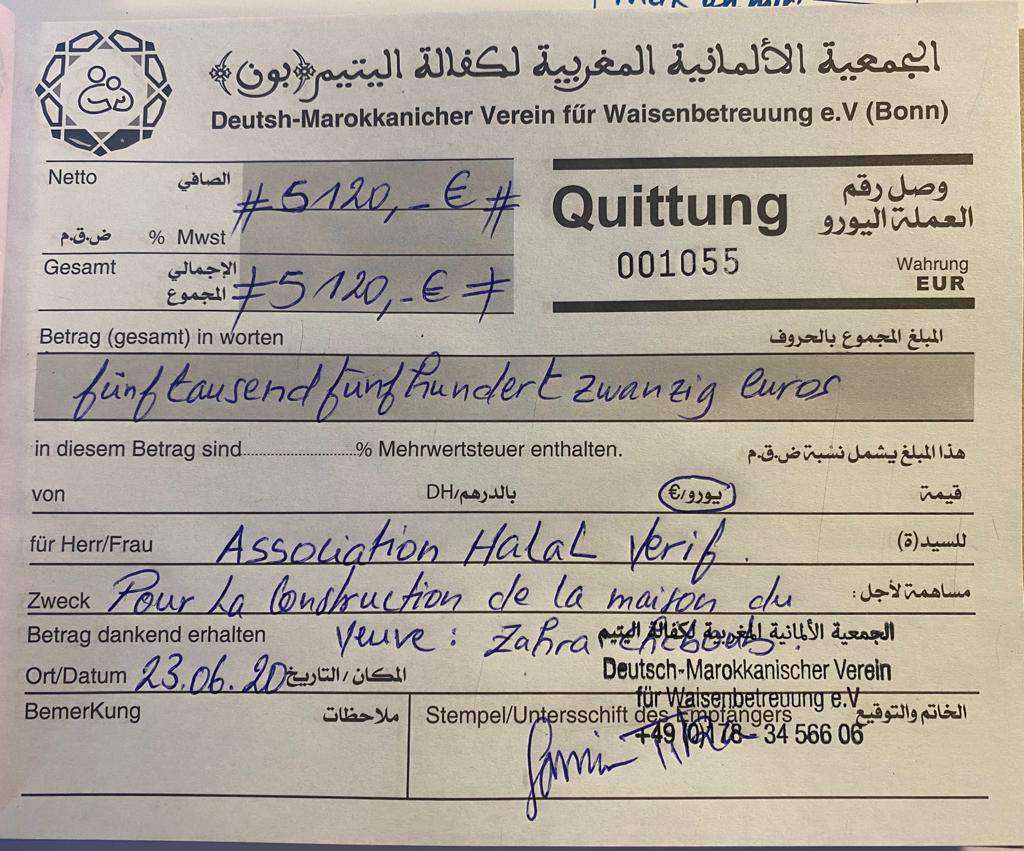 الجمعية الألمانية المغربية لكفالة اليتيم ﴿بون﴾
Deutsh-Marokkanicher Verein für Waisenbetreuung e.V (Bonn)
Netto الصافي # 5120,- € #
ض.ق.م % Mwst
Quittung وصل رقم
العملة اليورو
001055
Wahrung
EUR
Gesamt الإجمالي المجموع # 5120,- € #
Betrag (gesamt) in worten المبلغ المجموع بالحروف
fünftausendfünfhundert zwanzig euros
in diesem Betrag sind............................% Mehrwertsteuer enthalten. هذا المبلغ يشمل نسبة ض.ق.م
von DH/بالدرهم €/يورو قيمة
für Herr/Frau Association Halal Verif. للسيد(ة)
Zweck Pour la Construction de la maison du مساهمة لأجل:
Betrag dankend erhalten Veuve: Zahra
الجمعية الألمانية المغربية لكفالة اليتيم
Ort/Datum 23.06.20 المكان/التاريخ
Deutsch-Marokkanischer Verein
für Waisenbetreuung e.V
BemerKung ملاحظات Stempel/Untersschift des Empfängers الخاتم والتوقيع
+49 (0)178 - 34 566 06